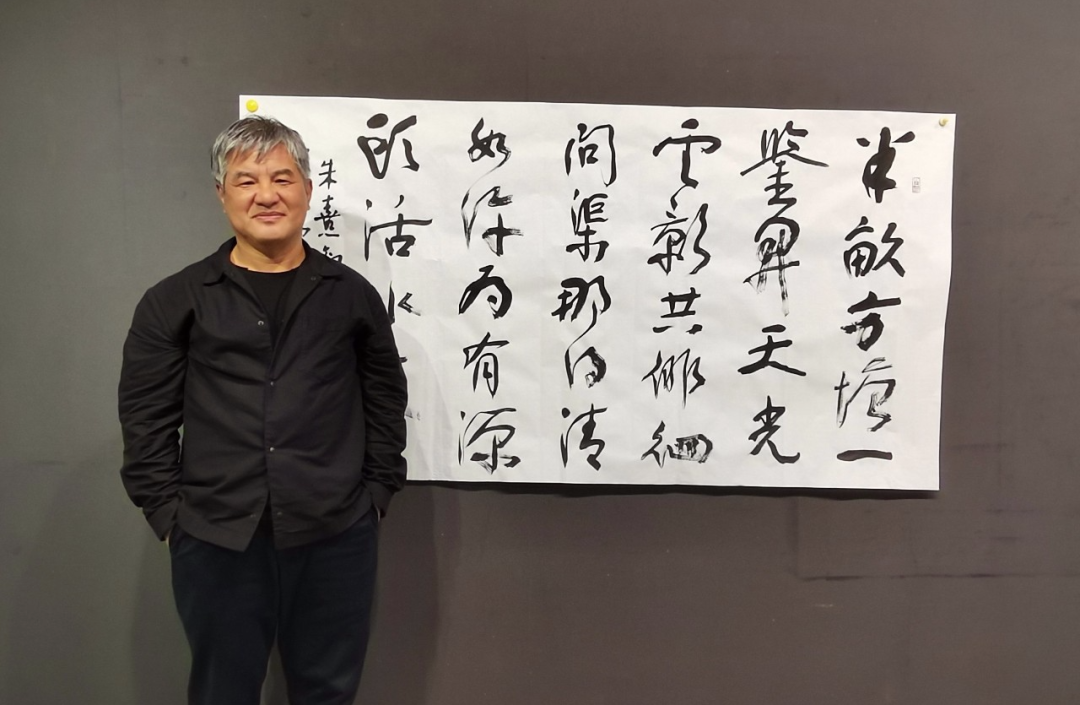 半畝方塘一
鑒開天光
雲影共徘徊
問渠那得清
如許為有源
頭活水
朱熹